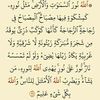 ٱللَّهُ نُورُ ٱلسَّمَٰوَٰتِ وَٱلۡأَرۡضِۚ مَثَلُ نُورِهِۦ
كَمِشۡكَوٰةٖ فِيهَا مِصۡبَاحٌۖ ٱلۡمِصۡبَاحُ فِي
زُجَاجَةٍۖ ٱلزُّجَاجَةُ كَأَنَّهَا كَوۡكَبٞ دُرِّيّٞ يُوقَدُ
مِن شَجَرَةٖ مُّبَٰرَكَةٖ زَيۡتُونَةٖ لَّا شَرۡقِيَّةٖ
وَلَا غَرۡبِيَّةٖ يَكَادُ زَيۡتُهَا يُضِيٓءُ وَلَوۡ لَمۡ تَمۡسَسۡهُ
نَارٞۚ نُّورٌ عَلَىٰ نُورٖۚ يَهۡدِي ٱللَّهُ لِنُورِهِۦ مَن
يَشَآءُۚ وَيَضۡرِبُ ٱللَّهُ ٱلۡأَمۡثَٰلَ لِلنَّاسِۗ وَٱللَّهُ
بِكُلِّ شَيۡءٍ عَلِيمٞ